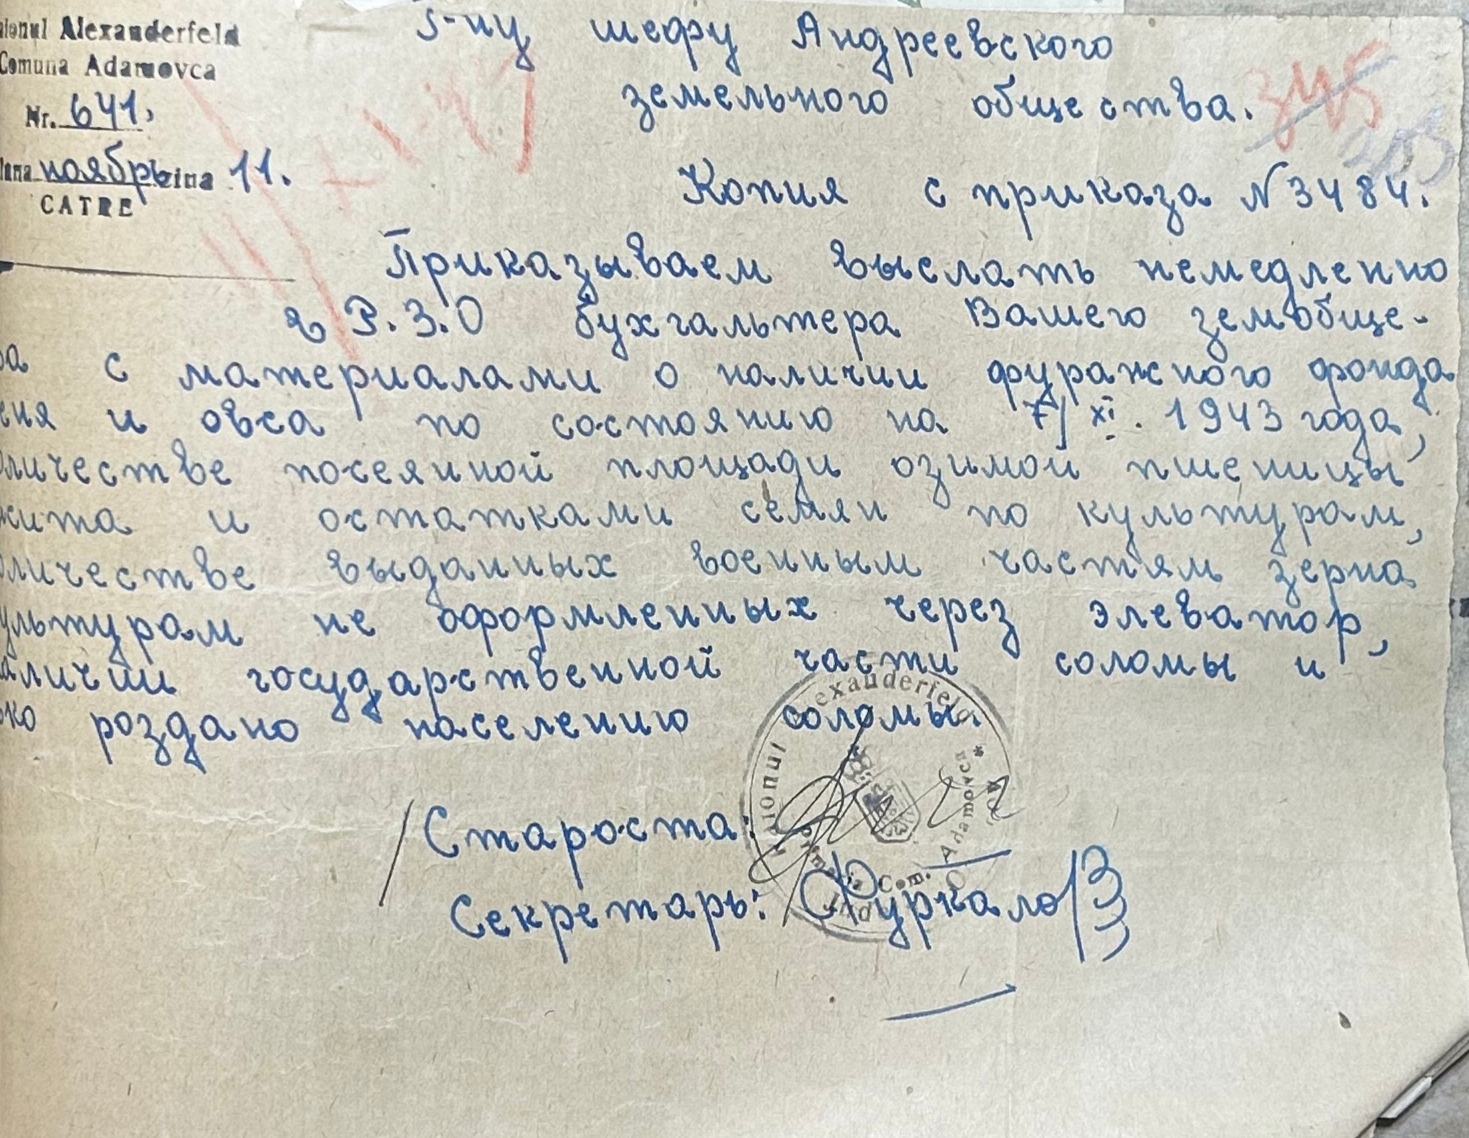 ionul Alexanderfeld
Comuna Adamovca
Nr. 641.
Luna ноябрь ziua 11.
CATRE
Г-ну шефу Андреевского
земельного общества.
345
203
11/XI-43
Копия с приказа N 3484.
Приказываем выслать немедленно
в Р.З.О бухгалтера Вашего земобще-
ва с материалами о наличии фуражного фонда
еня и овса по состоянию на 7/XI. 1943 года,
оличестве посеянной площади озимой пшеницы
жита и остатками семян по культурам,
оличестве выданных военным частям зерна
ультурам не оформленных через элеватор,
аличии государственной части соломы и
ько роздано населению соломы.
Староста:
Секретарь: /Фуркало/
Raionul Alexanderfeld * Jud.
Primaria Com. Adamovca